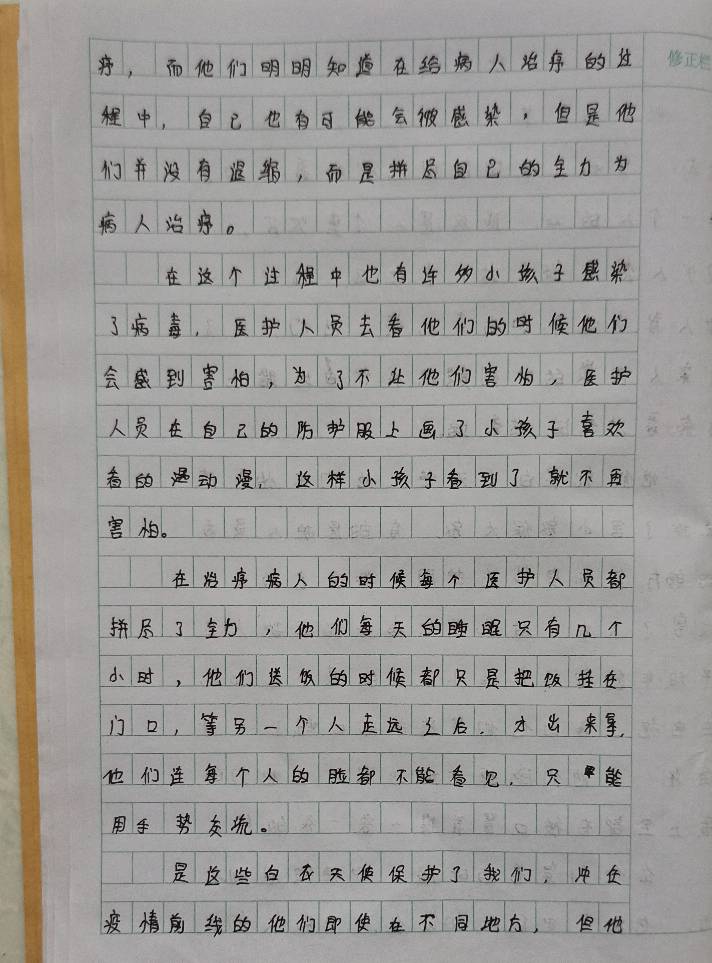 疗，而他们明明知道在给病人治疗的过
修正栏
程中，自己也有可能会被感染，但是他
们并没有退缩，而是拼尽自己的全力为
病人治疗。
在这个过程中也有许多小孩子感染
了病毒，医护人员去看他们的时候他们
会感到害怕，为了不让他们害怕，医护
人员在自己的防护服上画了小孩子喜欢
看的动漫，这样小孩子看到了就不再
害怕。
在治疗病人的时候每个医护人员都
拼尽了全力，他们每天的睡眠只有几个
小时，他们送饭的时候都只是把饭挂在
门口，等另一个人走远之后，才出来拿，
他们连每个人的脸都不能看见，只能
用手势交流。
是这些白衣天使保护了我们，冲在
疫情前线的他们即使在不同地方，但他